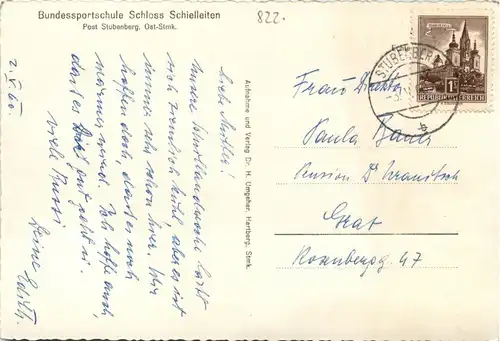 Bundessportschule Schloss Schielleiten
Post Stubenberg, Ost-Stmk.
822.
2.V.60.
Liebe Mutter!
unsere läßt
sich ziemlich kühl, aber es ist
immer sehr schön hier. Wir
hoffen doch, daß es noch
wärmer wird. Ich hoffe auch,
daß es Dir gut geht u.
viele Bussi
Deine Edith
Aufnahme und Verlag Dr. H. Umgeher, Hartberg, Stmk.
STUBENBERG
REPUBLIK ÖSTERREICH
Frau Direktor
Paula Bauer
Pension Dr
Graz
Rosenbergg. 47